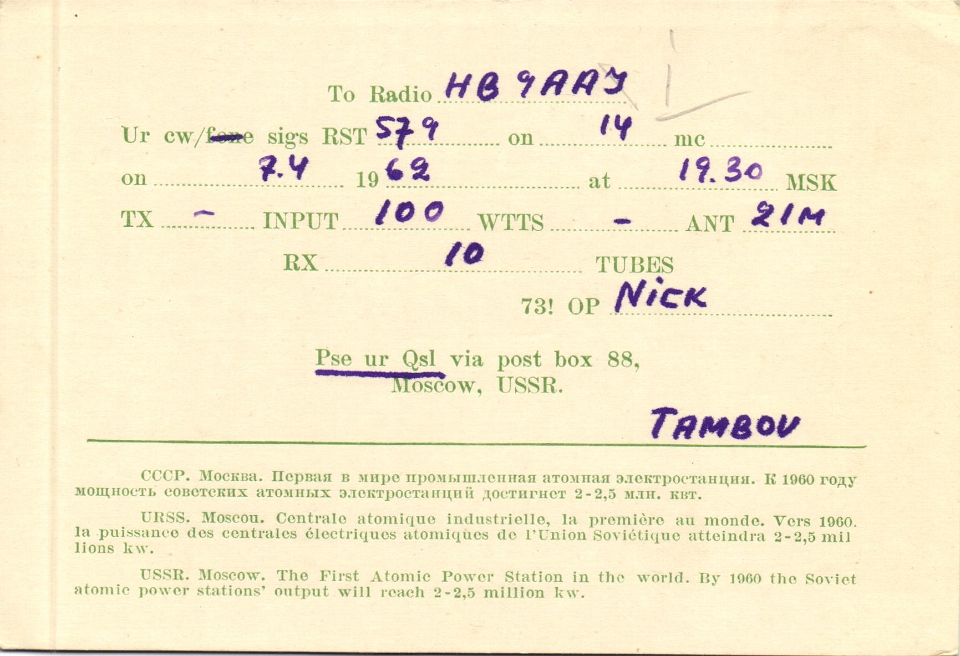 To Radio HB9AAJ
Ur cw/fone sigs RST 579 on 14 mc
on 7.4 1962 at 19.30 MSK
TX - INPUT 100 WTTS - ANT 21M
RX 10 TUBES
73! OP Nick
Pse ur Qsl via post box 88,
Moscow, USSR.
TAMBOV
СССР. Москва. Первая в мире промышленная атомная электростанция. К 1960 году
мощность советских атомных электростанций достигнет 2-2,5 млн. квт.
URSS. Moscou. Centrale atomique industrielle, la première au monde. Vers 1960.
la puissance des centrales électriques atomiques de l'Union Soviétique atteindra 2-2,5 mil
lions kw.
USSR. Moscow. The First Atomic Power Station in the world. By 1960 the Soviet
atomic power stations' output will reach 2-2,5 million kw.